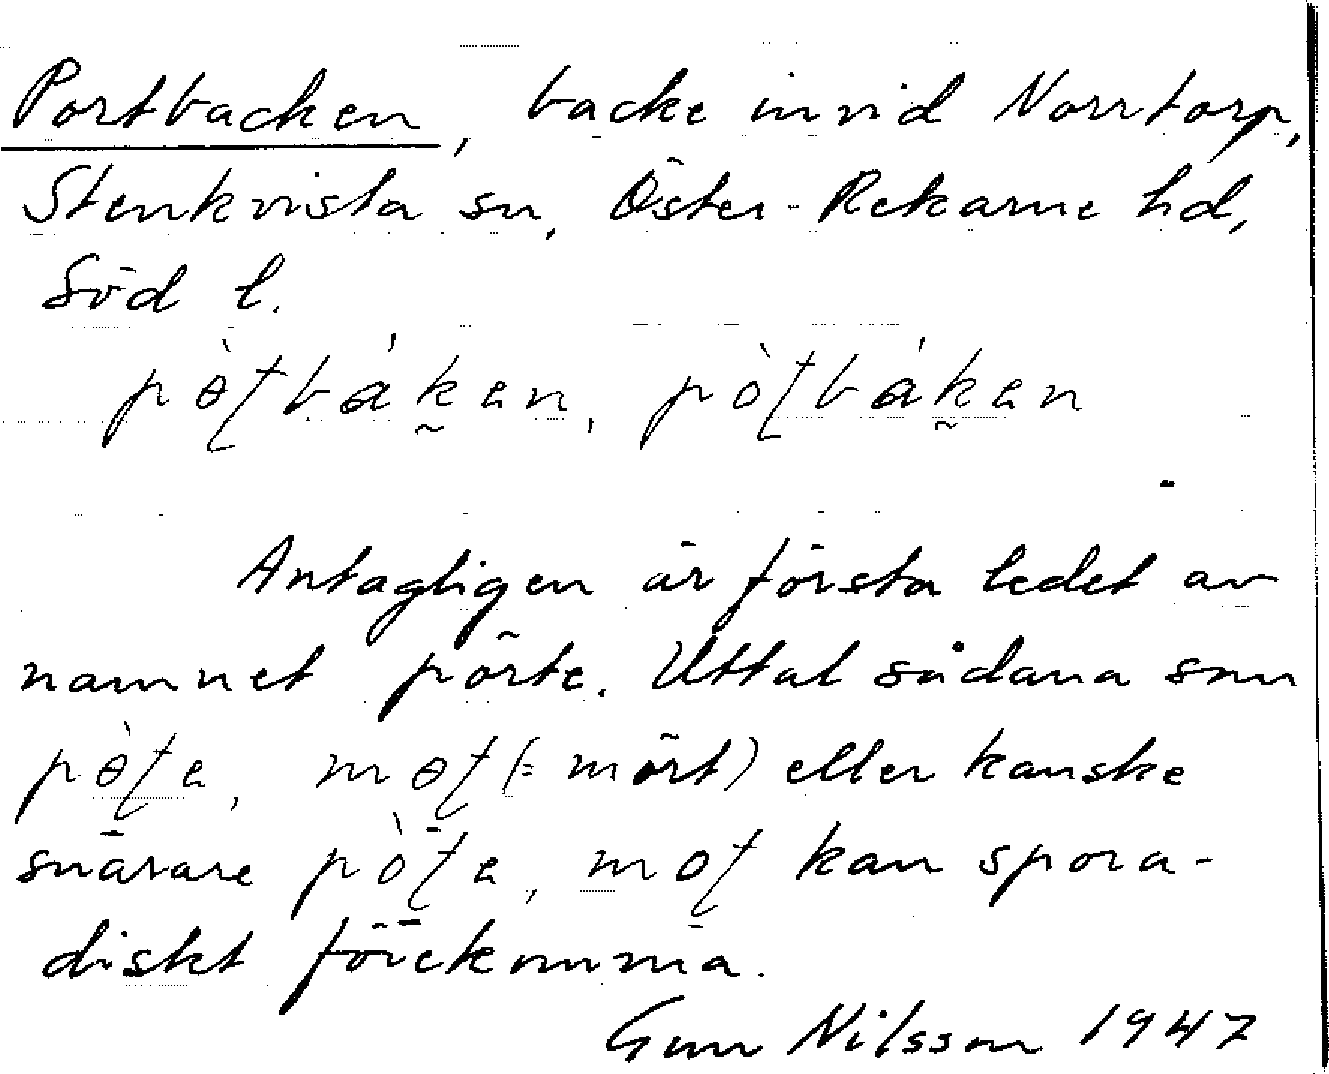 Portbacken, backe invid Norrtorp,
Stenkvista sn, Öster-Rekarne hd,
Söd l.
pɵ̀ʈbák̰en, pòʈbák̰en
Antagligen är första ledet av
namnet pörte. Uttal sådana som
pɵ̀ʈe, mɵʈ (= mört) eller kanske
snarare pòʈe, moʈ kan spora-
diskt förekomma.
Gun Nilsson 1947